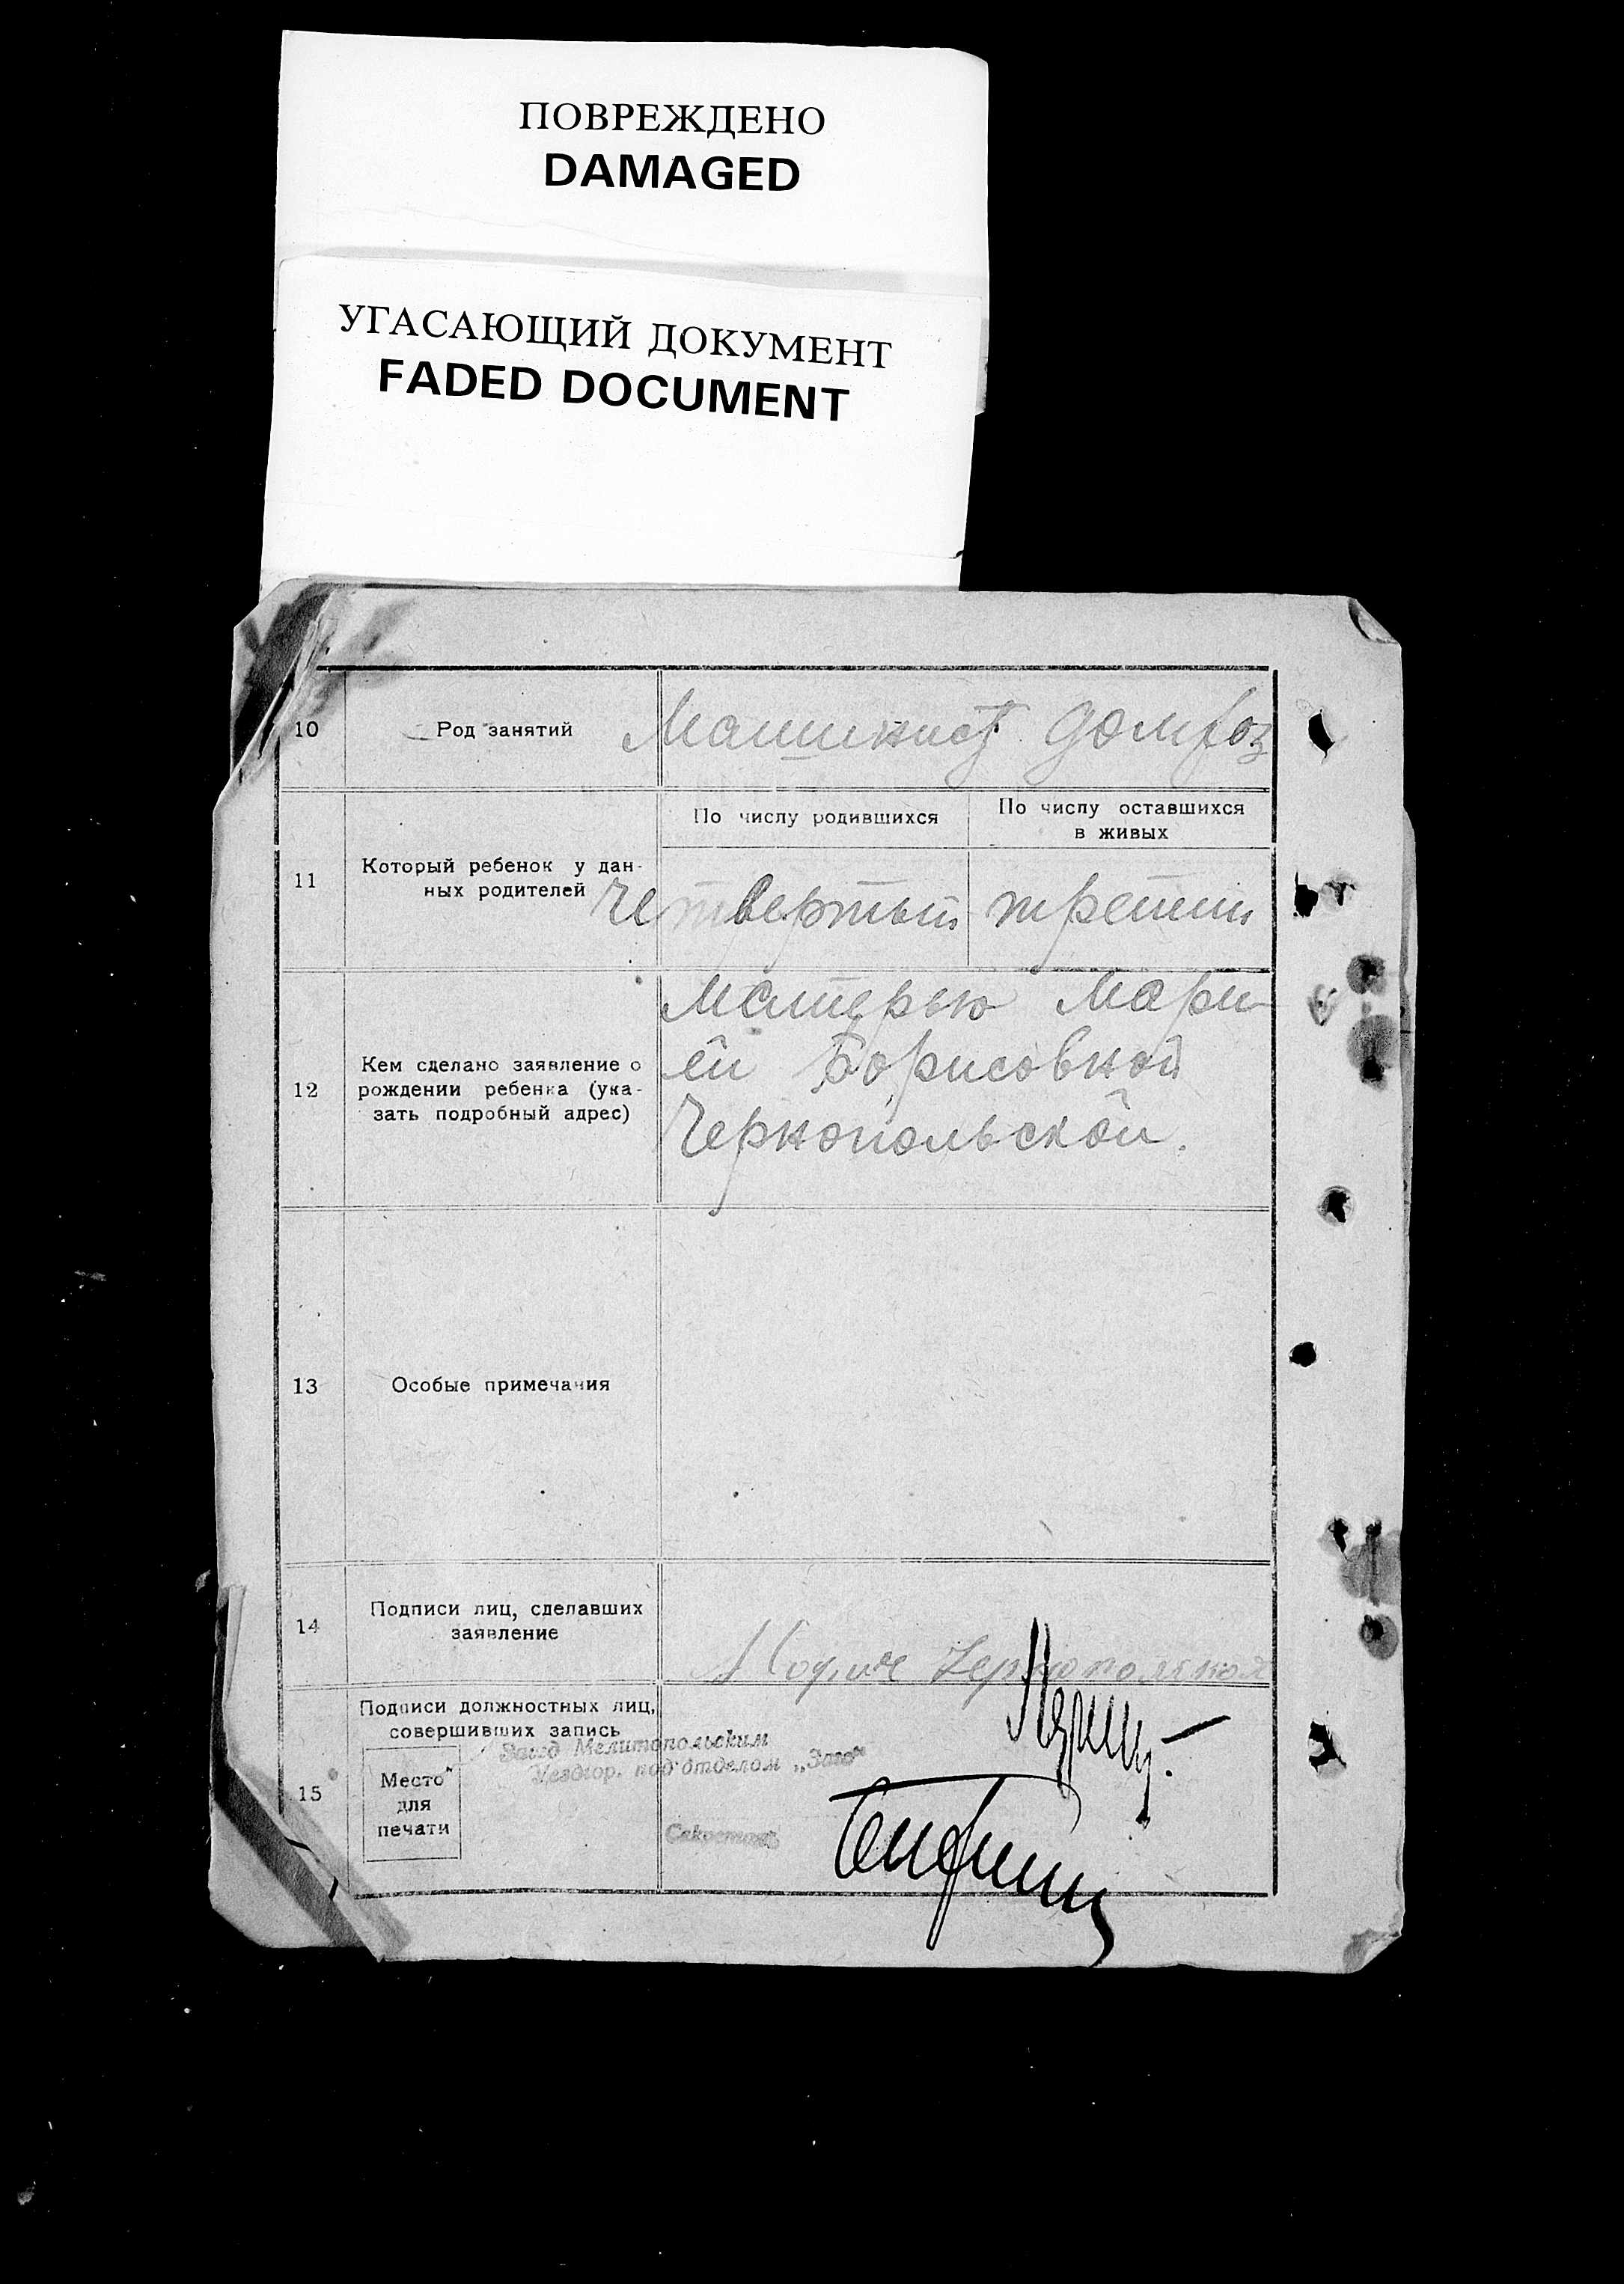 ПОВРЕЖДЕНО
DAMAGED
УГАСАЮЩИЙ ДОКУМЕНТ
FADED DOCUMENT
10
Род занятий
Машинист
11
Который ребенок у дан-
ных родителей
По числу родившихся
По числу оставшихся
в живых
четвертый
третий
12
Кем сделано заявление о
рождении ребенка (ука-
зать подробный адрес)
Матерью Мари
ей Борисовной
Чернопольской.
13
Особые примечания
14
Подписи лиц, сделавших
заявление
15
Подписи должностных лиц,
совершивших запись
Место
для
печати
Завед Мелитопольским
Уездгор. подотделом „Загс"
Секретарь